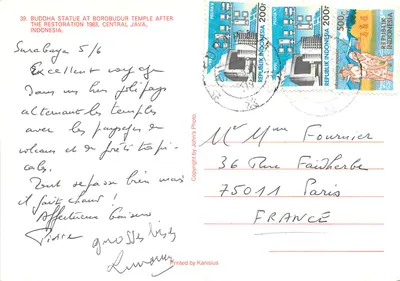 39. BUDDHA STATUE AT BOROBUDUR TEMPLE AFTER
THE RESTORATION 1983, CENTRAL JAVA,
INDONESIA.
Surabaya 5/6
Excellent voyage
Dans un très joli pays
alternant les temples
avec les paysages de
volcans et de forêts tropi-
cales.
Tout se passe bien mais
il fait chaud !
Affectueux baisers
Pierre
grosses bises
200r
REPUBLIK INDONESIA
200r
REPUBLIK INDONESIA
500r
REPUBLIK
INDONESIA
Copyright by John's Photo
Mr Mme Fournier
36 Rue Faidherbe
75011 Paris
FRANCE
Printed by Kanisius